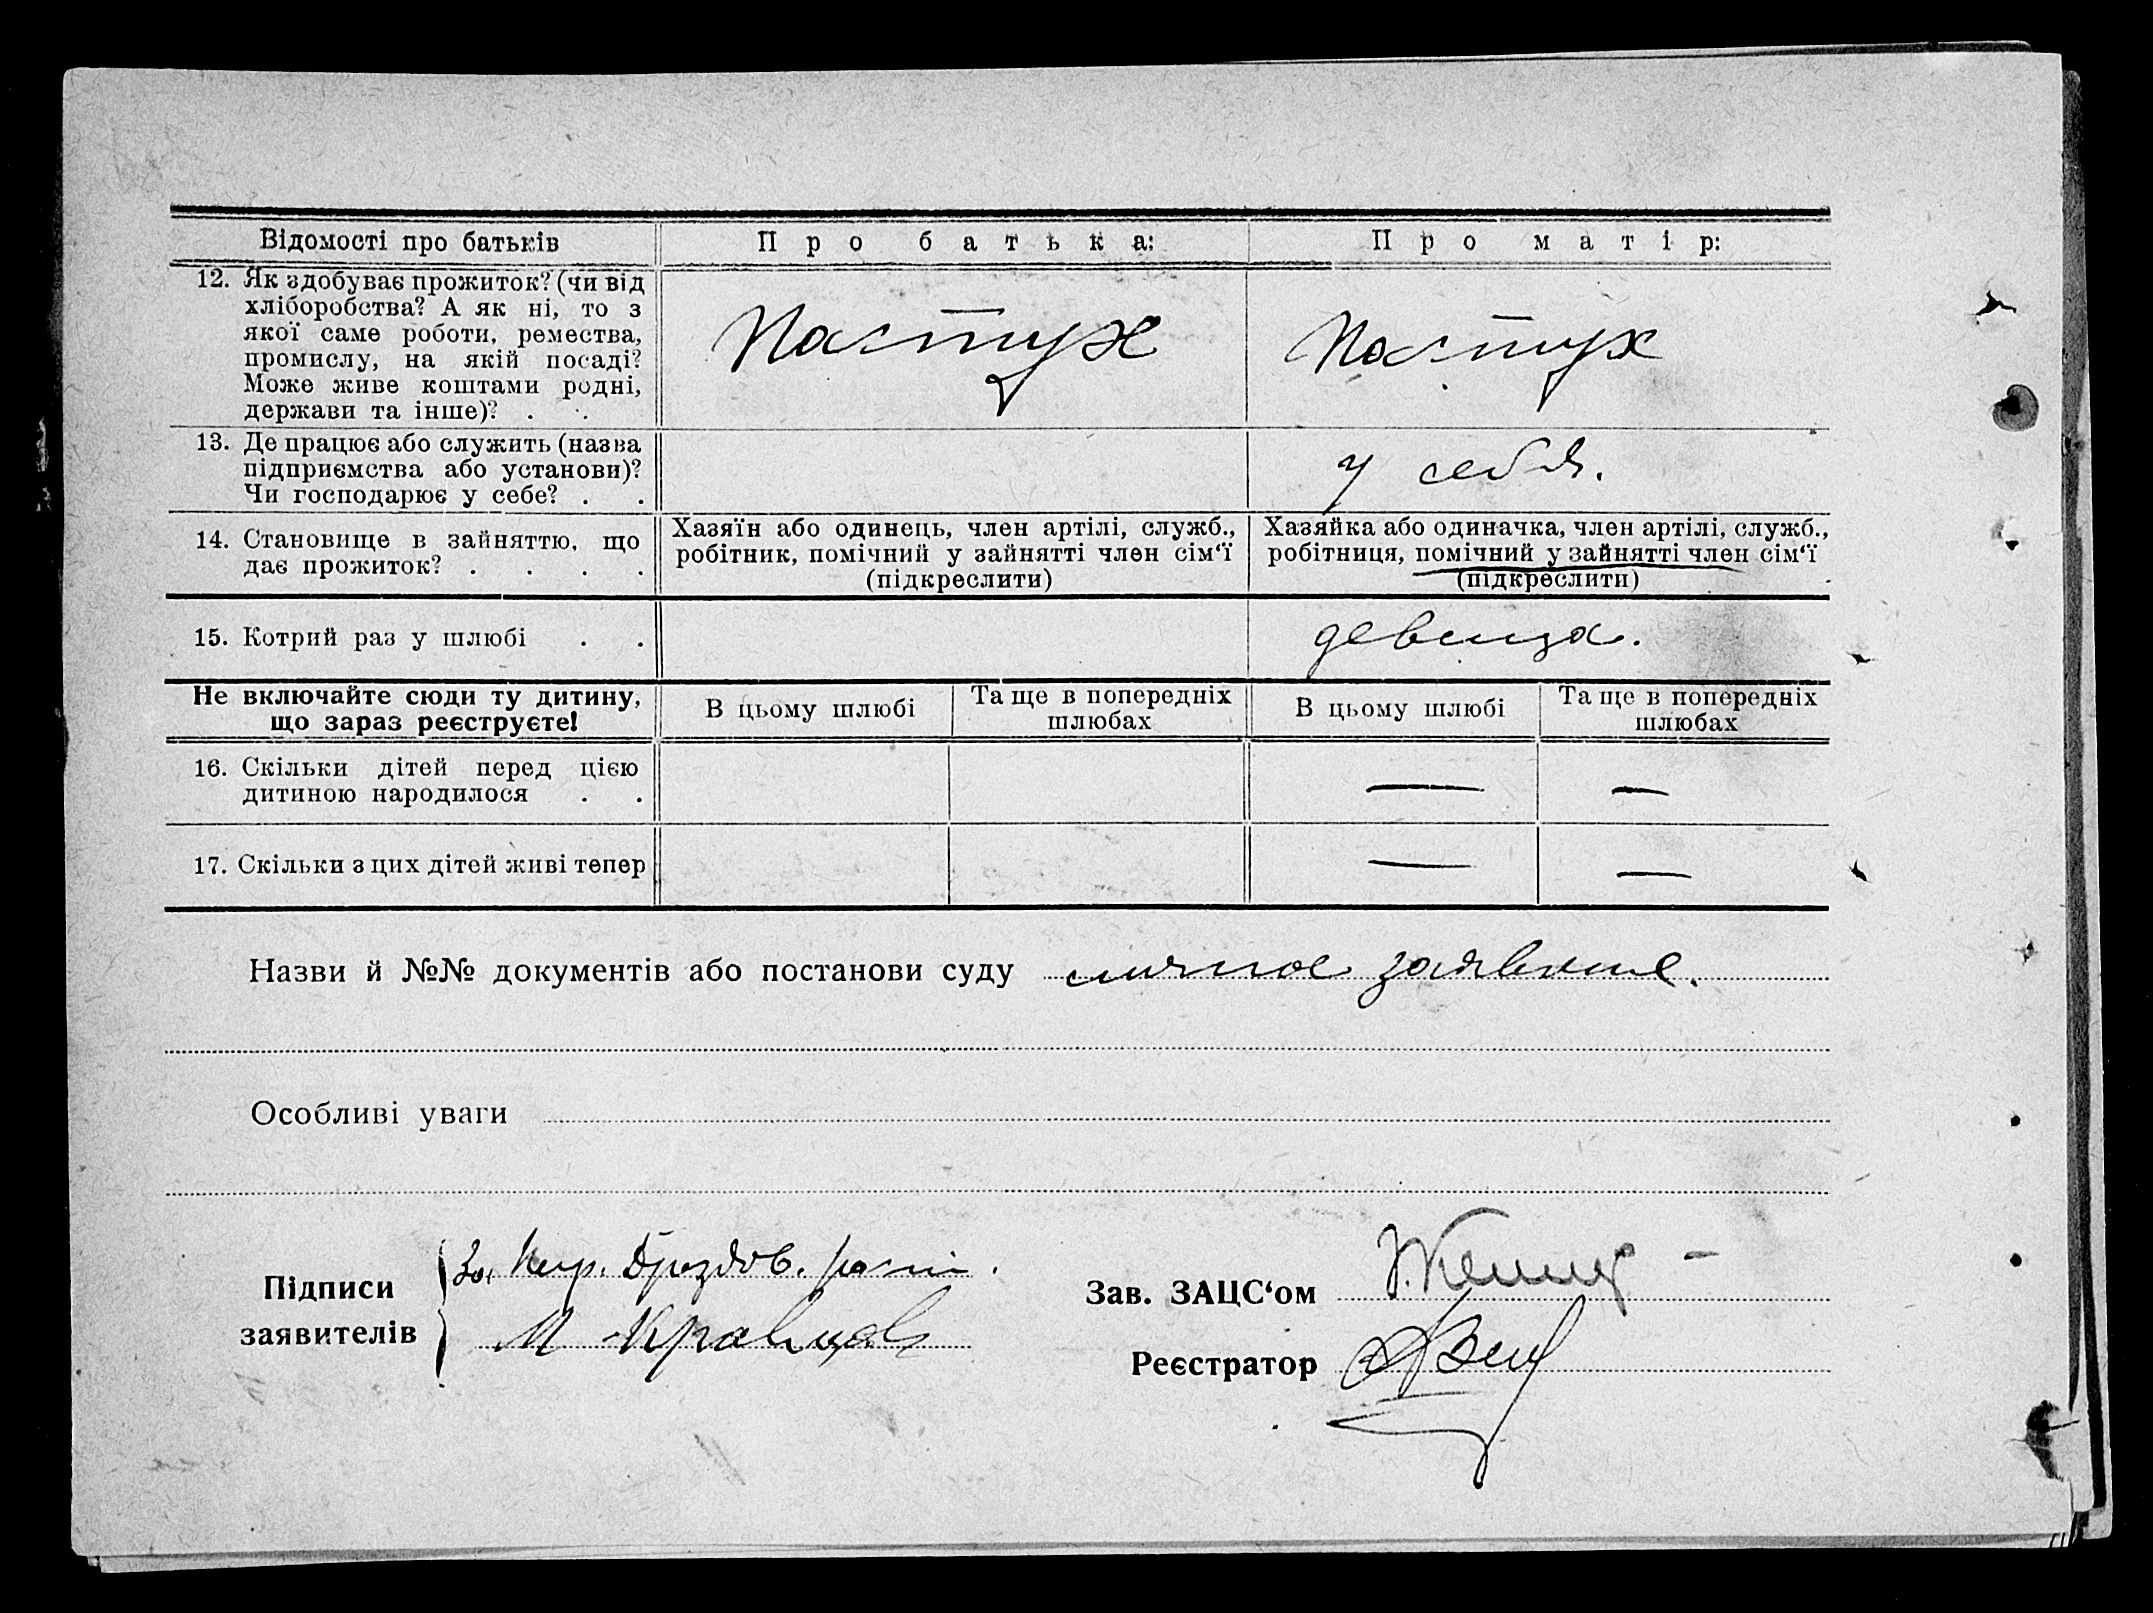 Відомості про батьків
Про батька:
Про матір:
12. Як здобуває прожиток? (чи від
хліборобства? А як ні, то з
якої саме роботи, ремества,
промислу, на якій посаді?
Може живе коштами родні,
держави та інше)? . .
Пастух
Пастух
13. Де працює або служить (назва
підприємства або установи)?
Чи господарює у себе? . .
у себя.
14. Становище в зайняттю, що
дає прожиток? . . . .
Хазяїн або одинець, член артілі, служб.,
робітник, помічний у зайнятті член сім‘ї
(підкреслити)
Хазяйка або одиначка, член артілі, служб.,
робітниця, помічний у зайнятті член сім‘ї
(підкреслити)
15. Котрий раз у шлюбі . .
девица.
Не включайте сюди ту дитину,
що зараз реєструєте!
В цьому шлюбі
Та ще в попередніх
шлюбах
В цьому шлюбі
Та ще в попередніх
шлюбах
16. Скільки дітей перед цією
дитиною народилося . .
— —
17. Скільки з цих дітей живі тепер
— —
Назви й №№ документів або постанови суду личное заявление.
Особливі уваги
Підписи
заявителів
За Дроздов.
М Кравцов
Зав. ЗАЦС‘ом
Реєстратор